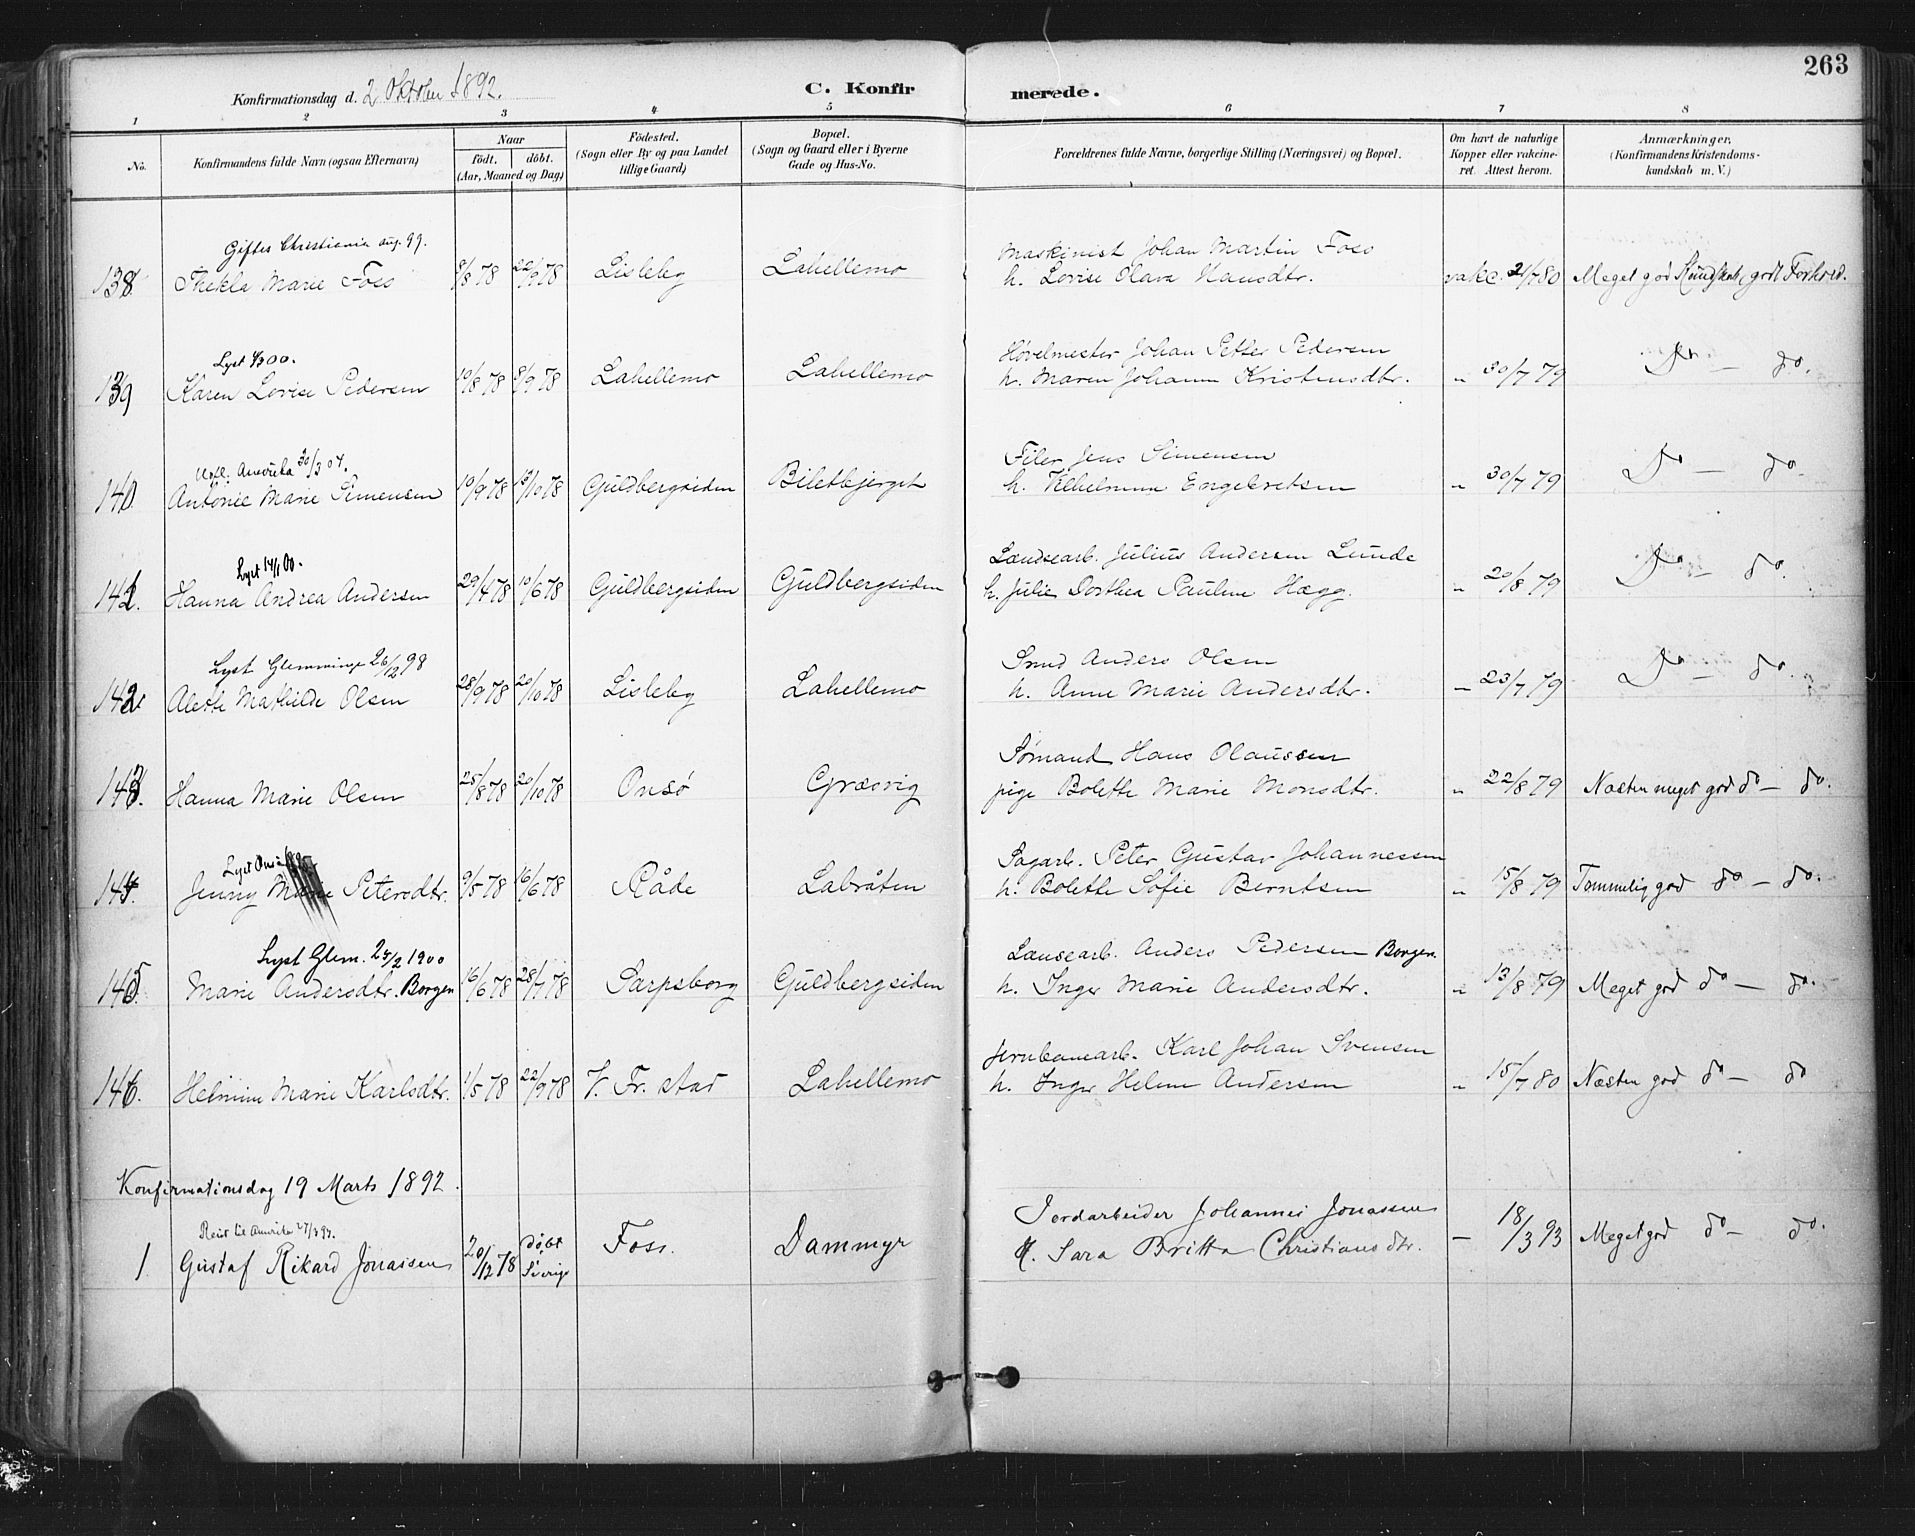 263
Konfirmationsdag d. 2 Oktober 1892.
C. Konfirmerede.
1 2 3 4 5 6 7 8
No.
Konfirmandens fulde Navn (ogsaa Efternavn)
Naar
födt. döbt.
(Aar, Maaned og Dag)
Födested.
(Sogn eller By og paa Landet
tillige Gaard)
Bopæl.
(Sogn og Gaard eller i Byerne
Gade og Hus-No.
Forældrenes fulde Navne, borgerlige Stilling (Næringsvei) og Bopæl.
Om havt de naturlige
Kopper eller vakcine-
ret. Attest herom.
Anmærkninger,
(Konfirmandens Kristendoms-
kundskab m. V.)
Giftes Christiania aug. 99.
Maskinist Johan Martin Foss
138. Thekla Marie Foss 9/8 78 22/9 78 Lisleby Lahellemo h. Lovise Olava Hansdtr. vakc. 2/7 80 Meget god Kundskab, godt Forhold.
Lyst 4/3 00.
Høvelmester Johan Petter Pedersen
139 Karen Lovise Pedersen 10/8 78 8/9 78 Lahellemo Lahellemo h. Maren Johanne Kristensdtr. " 30/7 79 Do — do.
Amerika 30/3 04.
Filer Jens Simensen
140. Antonie Marie Simensen 10/9 78 13/10 78 Guldbergsiden Biletbjerget h. Vilhelmine Engebretsen " 30/7 79 Do — do.
Lyst 14/1 00.
Lændsearb. Julius Andersen Lunde
141. Hanna Andrea Andersen 29/4 78 10/6 78 Guldbergsiden Guldbergsiden h. Julie Dorthea Pauline Hægg. " 20/8 79 Do — do.
Lyst Glemminge 26/12 98
Smed Anders Olsen
142. Alette Mathilde Olsen 28/9 78 20/10 78 Lisleby Lahellemo h. Anne Marie Andersdtr. — 23/7 79 Do — do.
Sømand Hans Olaussen
143. Hanna Marie Olsen 25/8 78 20/10 78 Onsö Græsvig pige Bolette Marie Monsdtr. " 22/8 79 Næsten meget god do — do.
Lyst Onsö
Sagarb. Peter Gustav Johannessen
144. Jenny Marie Petersdtr. 9/5 78 16/6 78 Råde Labråten h. Bolette Sofie Berntsen " 15/8 79 Temmelig god do — do.
Lyst Glem. 25/2 1900
Lænsearb. Anders Pedersen Borgen
145. Marie Andersdtr. Borgen 16/6 78 28/7 78 Sarpsborg Guldbergsiden h. Inger Marie Andersdtr. " 13/8 79 Meget god do — do.
Jernbanearb. Karl Johan Svensen
146. Helmine Marie Karlsdtr. 1/5 78 22/9 78 V. Fr. stad Lahellemo h. Inger Helene Andersen " 15/7 80 Næsten god do — do
Konfirmationsdag 19 Marts 1892.
Reist til Amerika 27/3 93.
Jordarbeider Johannes Jonassen
1. Gustaf Rikard Jonassen 20/12 78 Døbt Sverige Foss. Dammyr H. Sara Britta Christiansdtr. — 18/3 93 Meget god do — do.